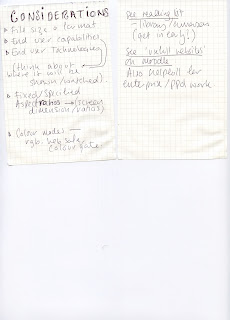 CONSIDERATIONS
File size + format
End user capabilities
End user Technology
(think about
where it will be
shown/watched).
Fixed/Specified
Aspect ratios → (screen
dimension/ratios)
Colour modes —
rgb, web safe
colour
see reading list
(get in early!)
see 'useful websites'
on moodle
Also helpful for
enterprise/PPD work